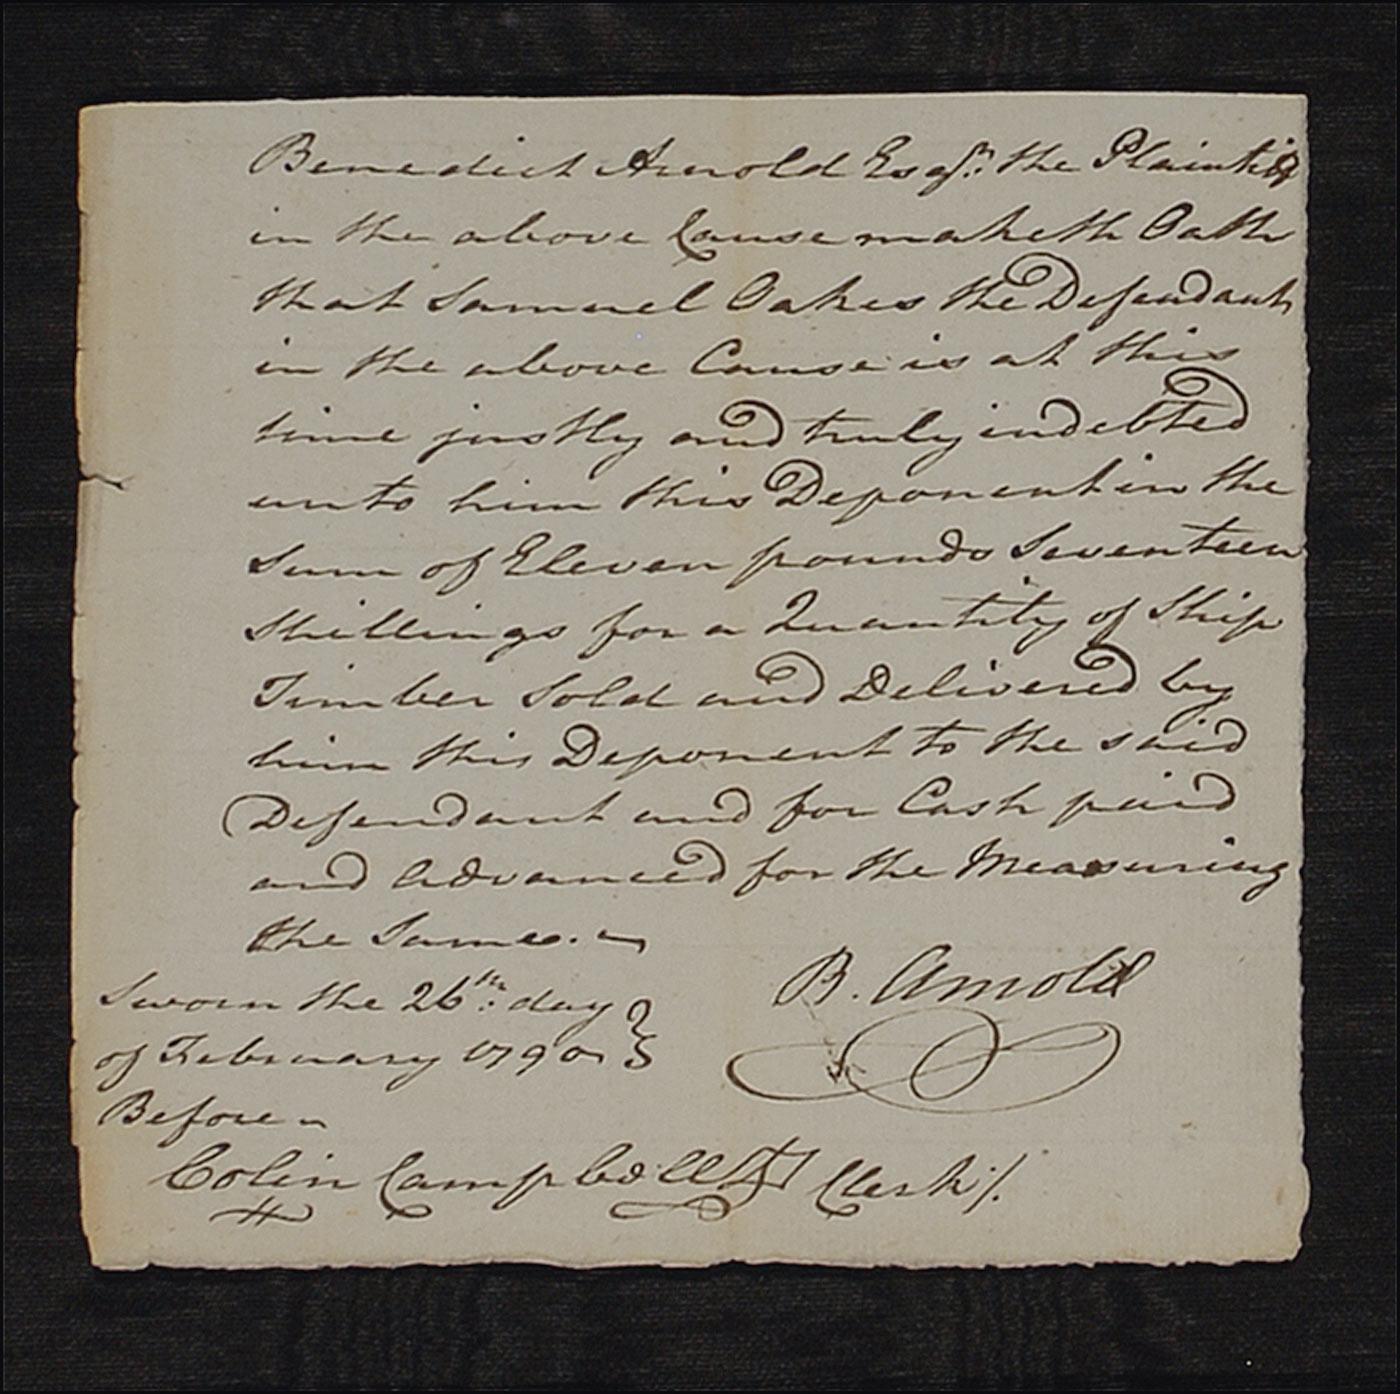 Benedict Arnold Esqr. the Plaintiff
in the above Cause maketh Oath
that Samuel Oakes the Defendant
in the above Cause is at this
time justly and truly indebted
unto him this Deponent in the
Sum of Eleven pounds Seventeen
Shillings for a Quantity of Ship
Timber Sold and Delivered by
him this Deponent to the said
Defendant and for Cash paid
and advanced for the Measuring
the Same.
Sworn the 26th. day
of February 1790
Before
B. Arnold
Colin Campbell Clerk